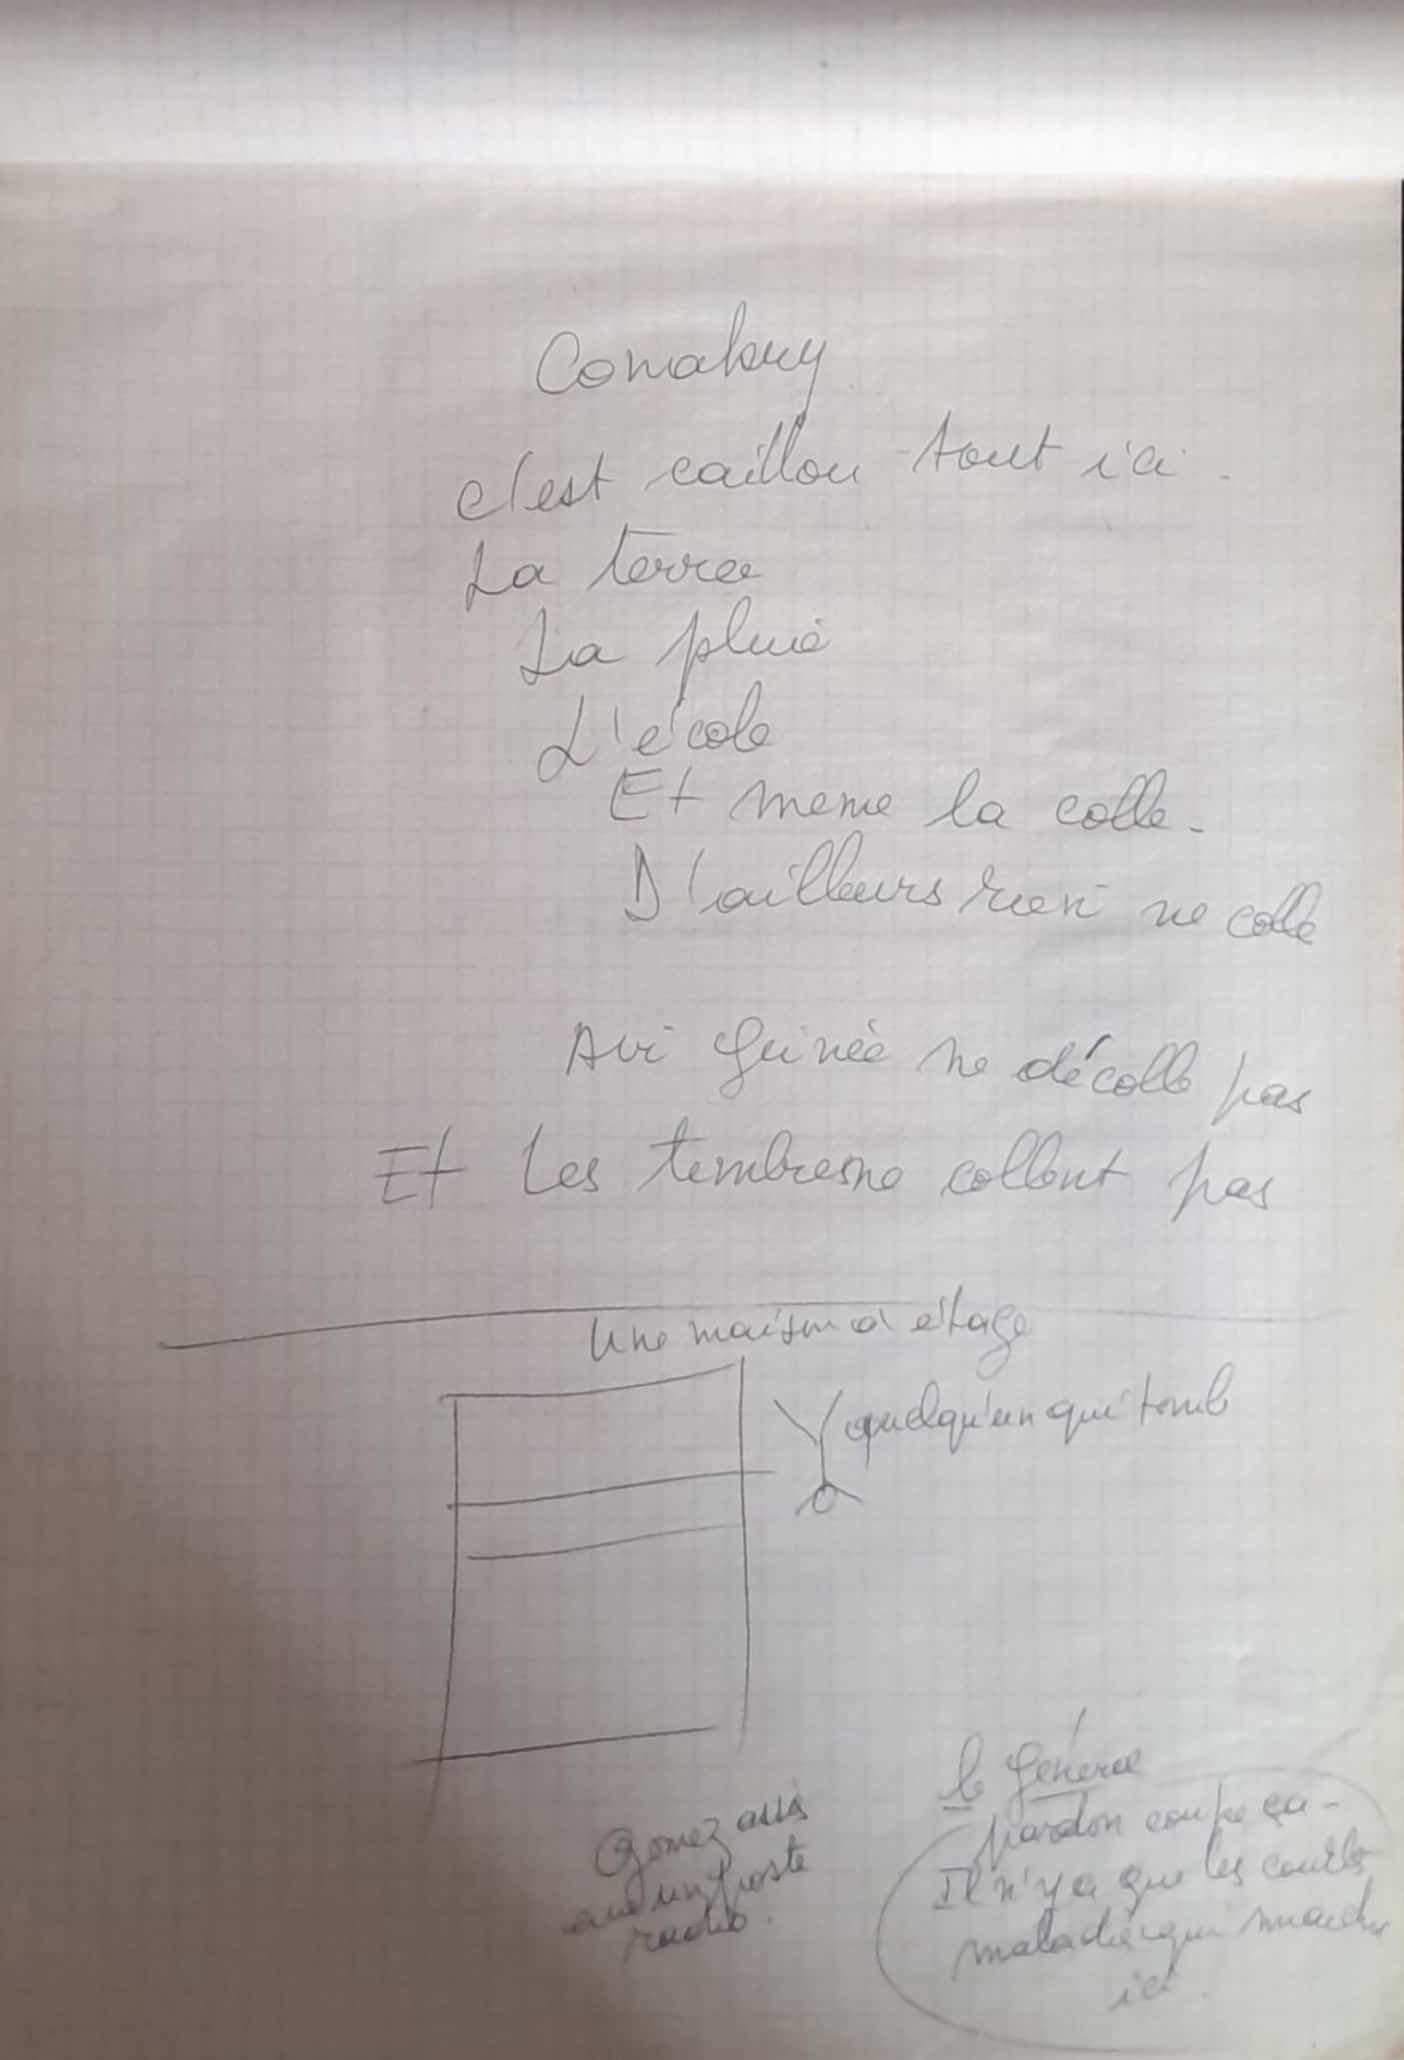 Conakry
c'est caillou tout ici.
La terre
La pluie
L'école
Et meme la colle.
D'ailleurs rien ne colle
Air Guinée ne décolle pas
Et Les timbres ne collent pas
Une maison à étage
quelqu'un qui tomb
Gomez assis
un poste
radio.
le Général
pardon coupe ça -
Il n'y a que les
maladies qui
ici.